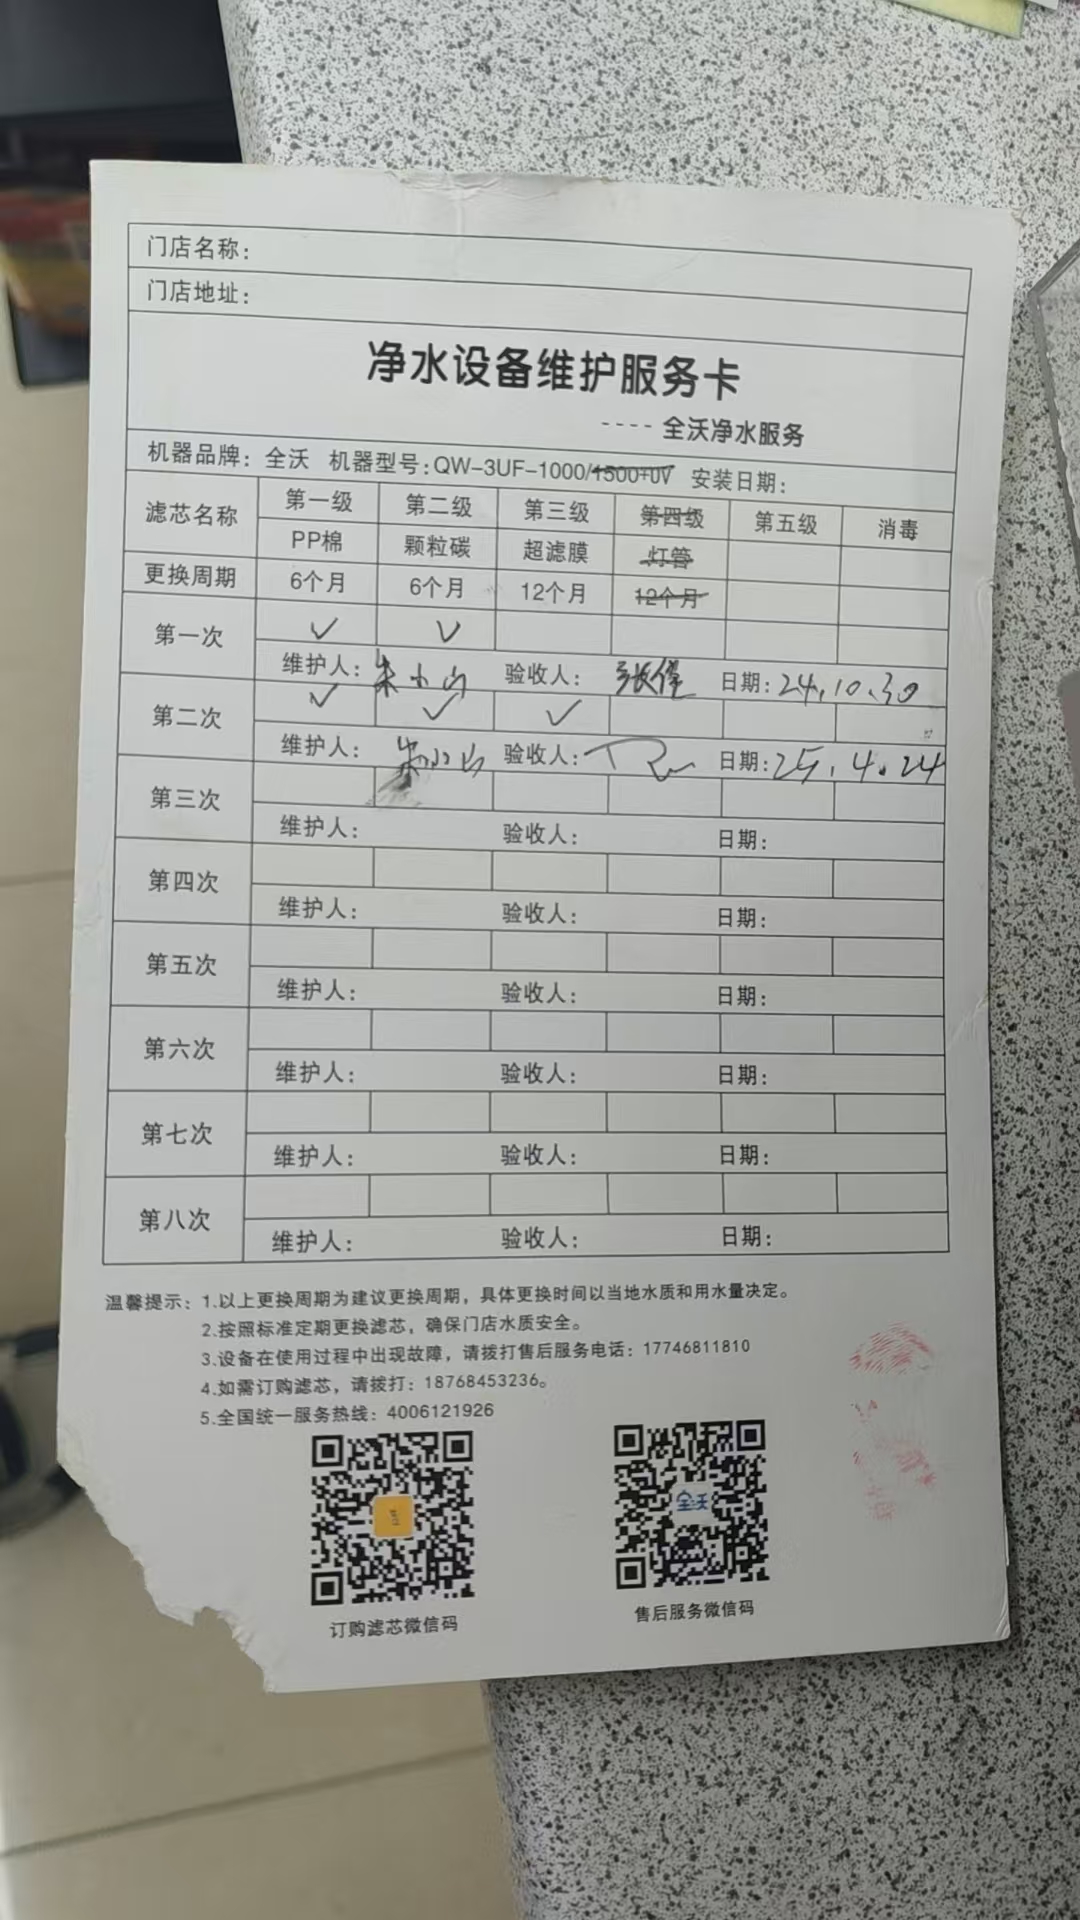 门店名称：
门店地址：
净水设备维护服务卡
---- 全沃净水服务
机器品牌：全沃 机器型号：QW-3UF-1000/1500+UV 安装日期：
滤芯名称 第一级 第二级 第三级 第四级 第五级 消毒
PP棉 颗粒碳 超滤膜 灯管
更换周期 6个月 6个月 12个月 12个月
第一次 ✓ ✓
维护人：朱小山 验收人：张 日期：24.10.30
第二次 ✓ ✓ ✓
维护人：朱小山 验收人： 日期：25.4.24
第三次
维护人： 验收人： 日期：
第四次
维护人： 验收人： 日期：
第五次
维护人： 验收人： 日期：
第六次
维护人： 验收人： 日期：
第七次
维护人： 验收人： 日期：
第八次
维护人： 验收人： 日期：
温馨提示：1.以上更换周期为建议更换周期，具体更换时间以当地水质和用水量决定。
2.按照标准定期更换滤芯，确保门店水质安全。
3.设备在使用过程中出现故障，请拨打售后服务电话：17746811810
4.如需订购滤芯，请拨打：18768453236。
5.全国统一服务热线：4006121926
全沃
订购滤芯微信码
售后服务微信码